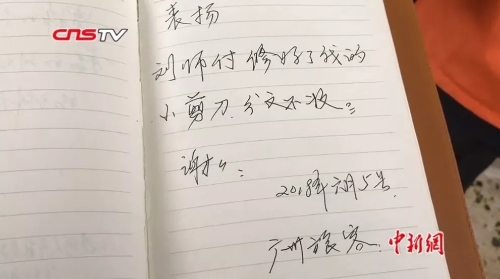 CNSTV
表扬
刘师付修好了我的
小剪刀.分文不收。
谢谢。
2018年六月5号.
广州旅客.
中新網